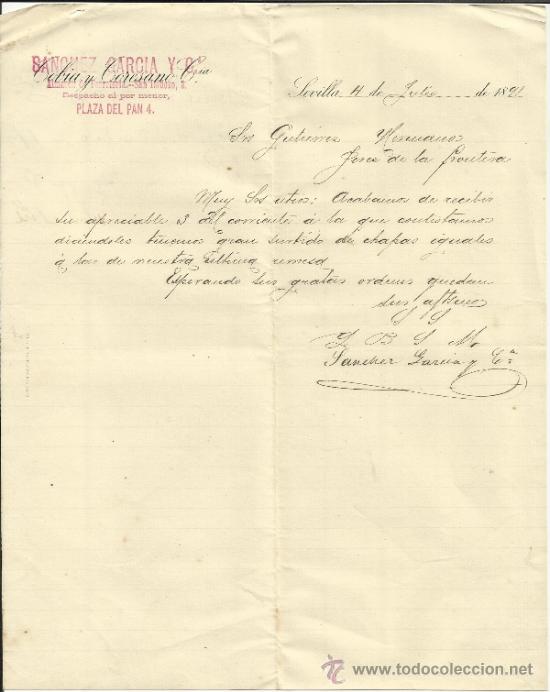 SANCHEZ GARCIA Y Cª
Tobia y Cerezano Cª
Almacen de Ferretería.-San Isidoro, 3.
Despacho al por menor,
PLAZA DEL PAN 4.
Sevilla 4 de Julio de 1891
Srs Gutierres Hermanos
Jeres de la frontera
Muy Srs ntros: Acabamos de recibir
su apreciable 3 del corriente á la que contestamos
diciendoles tenemos gran surtido de chapas iguales
á las de nuestra última remesa
Esperando sus gratas ordenes quedan
sus afftmos
S S
Q B S M
Sanchez Garcia y Cª
todocoleccion
www.todocoleccion.net